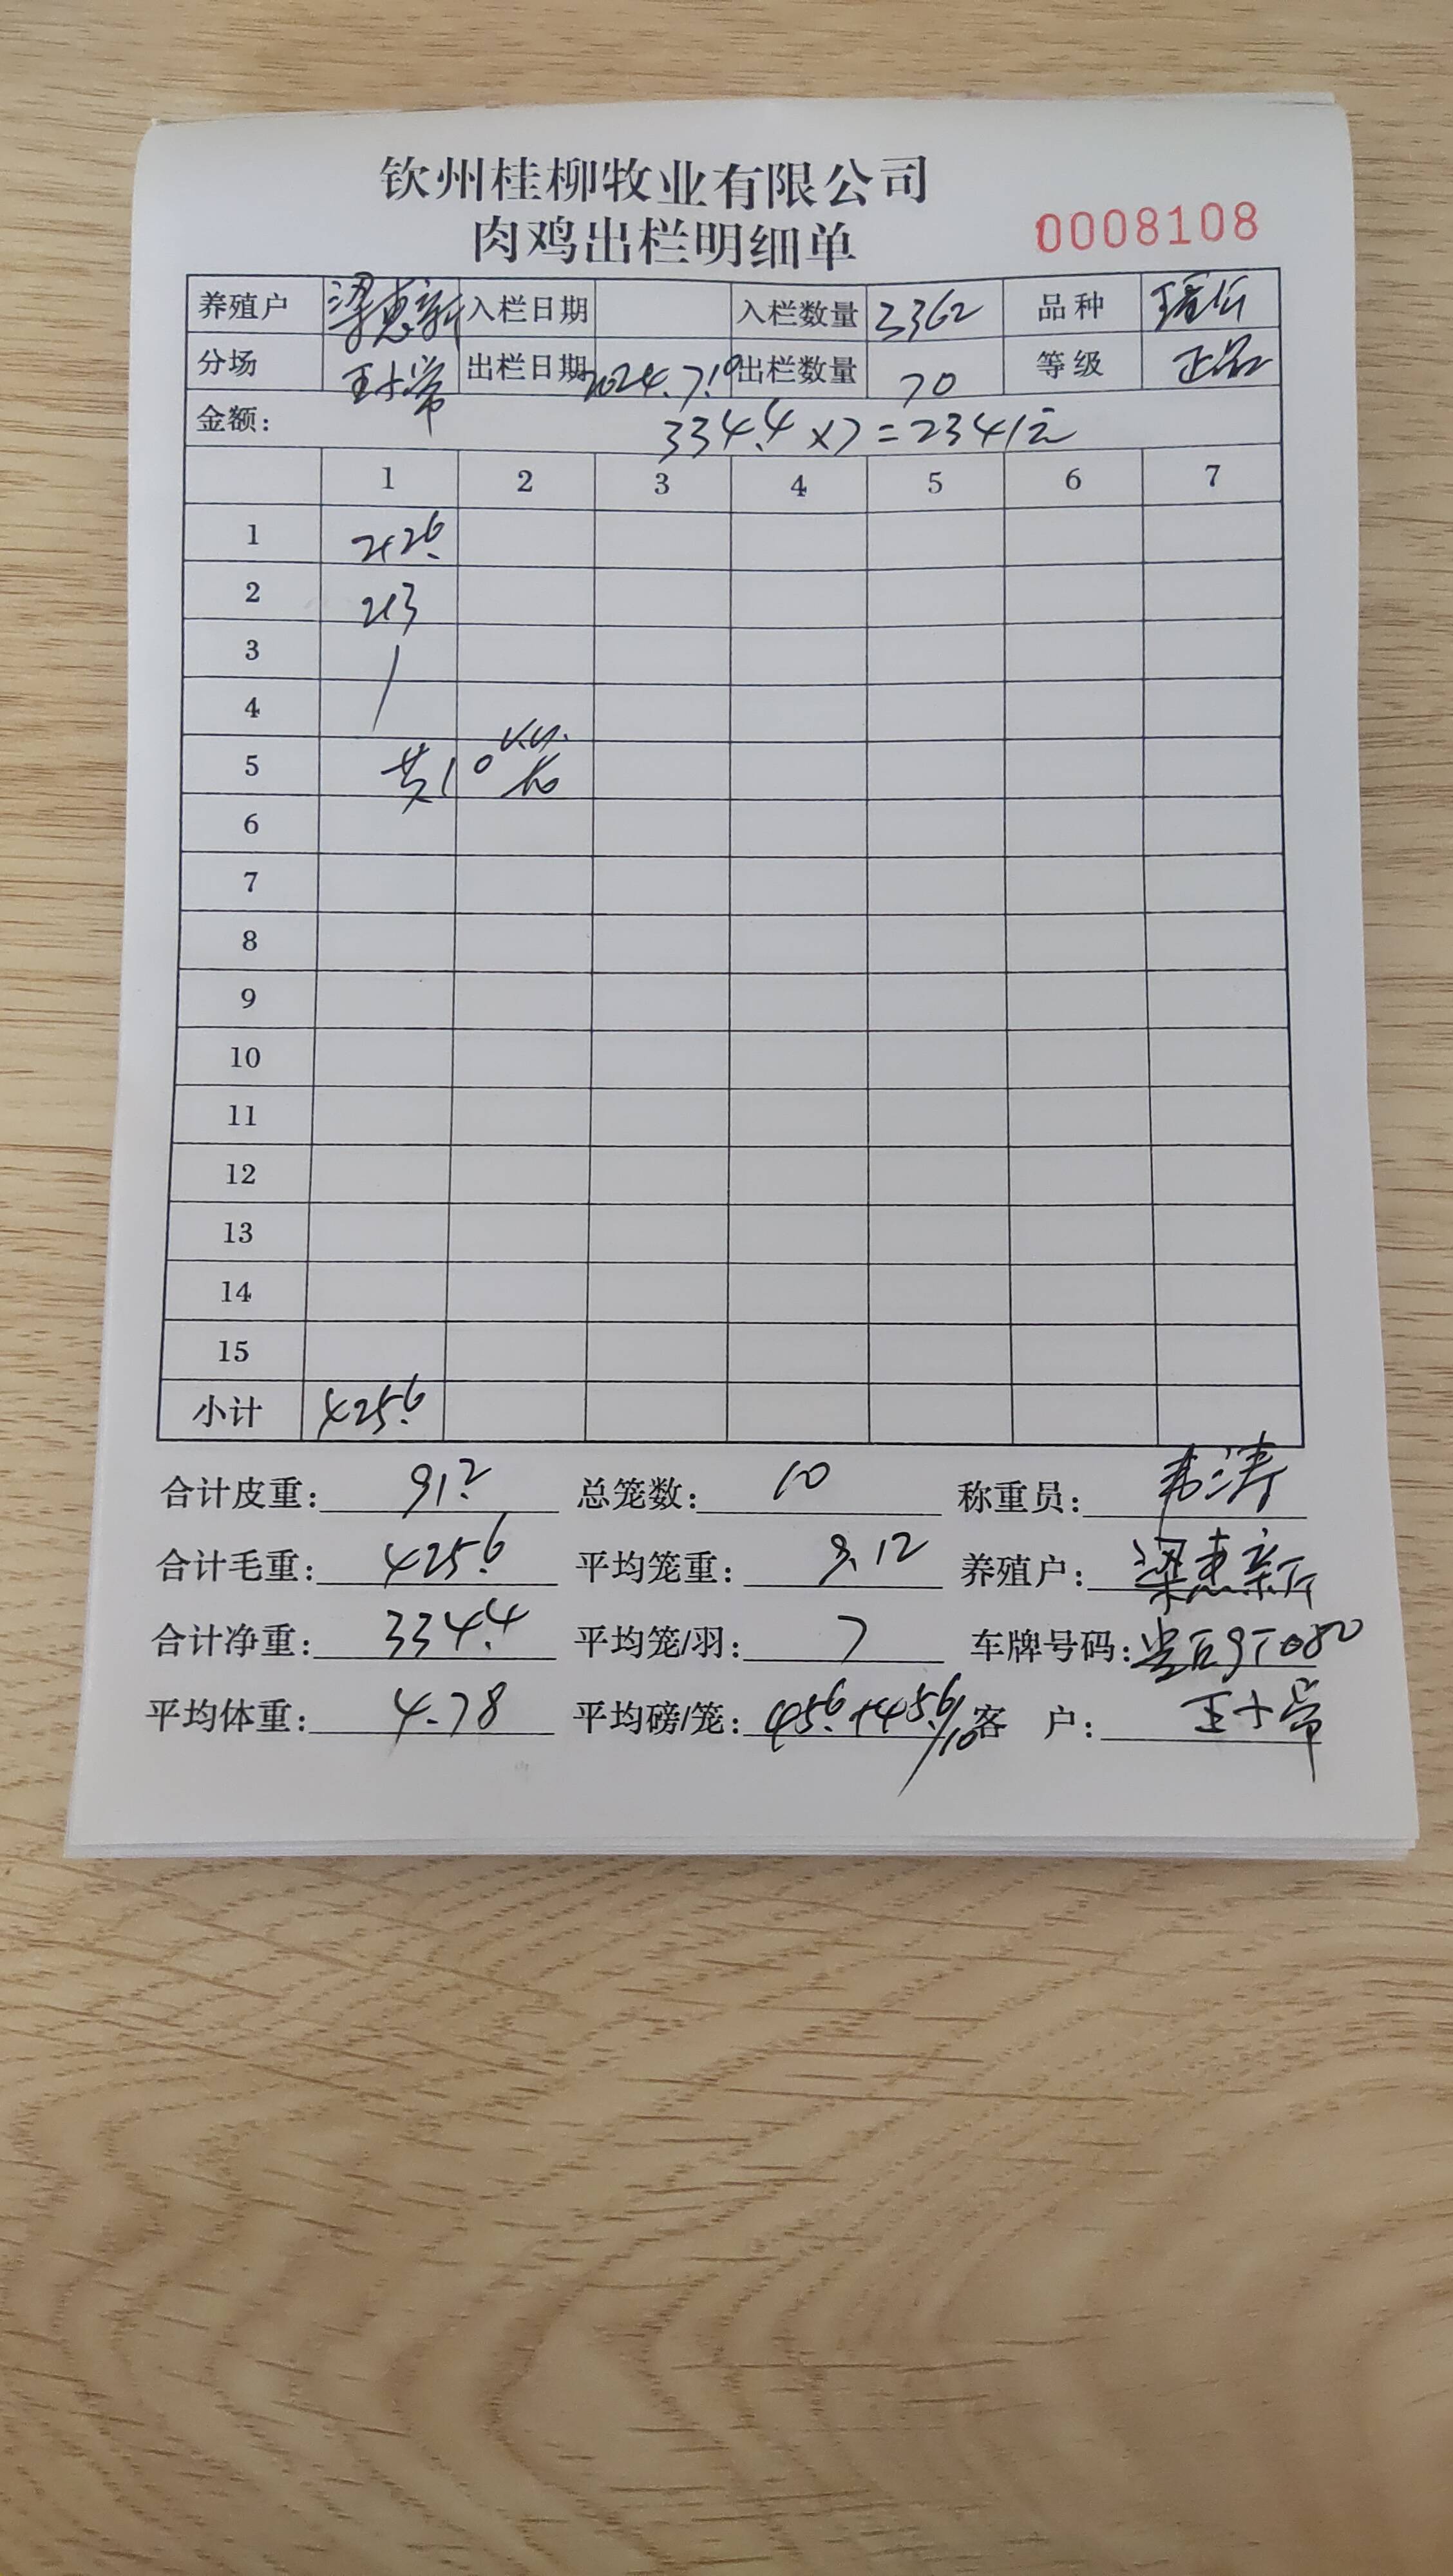 钦州桂柳牧业有限公司
肉鸡出栏明细单
0008108
养殖户 梁惠新 入栏日期 入栏数量 3362 品种
分场 王十常 出栏日期 2024.7.19 出栏数量 70 等级 正品
金额: 334.4×7=2341元
1 2 3 4 5 6 7
1 212.6
2 213
3
4
5 共10
6
7
8
9
10
11
12
13
14
15
小计 425.6
合计皮重: 91.2 总笼数: 10 称重员: 韦涛
合计毛重: 425.6 平均笼重: 9.12 养殖户: 梁惠新
合计净重: 334.4 平均笼/羽: 7 车牌号码:
平均体重: 4.78 平均磅/笼: 45.6+45.6/10 客 户: 王十常